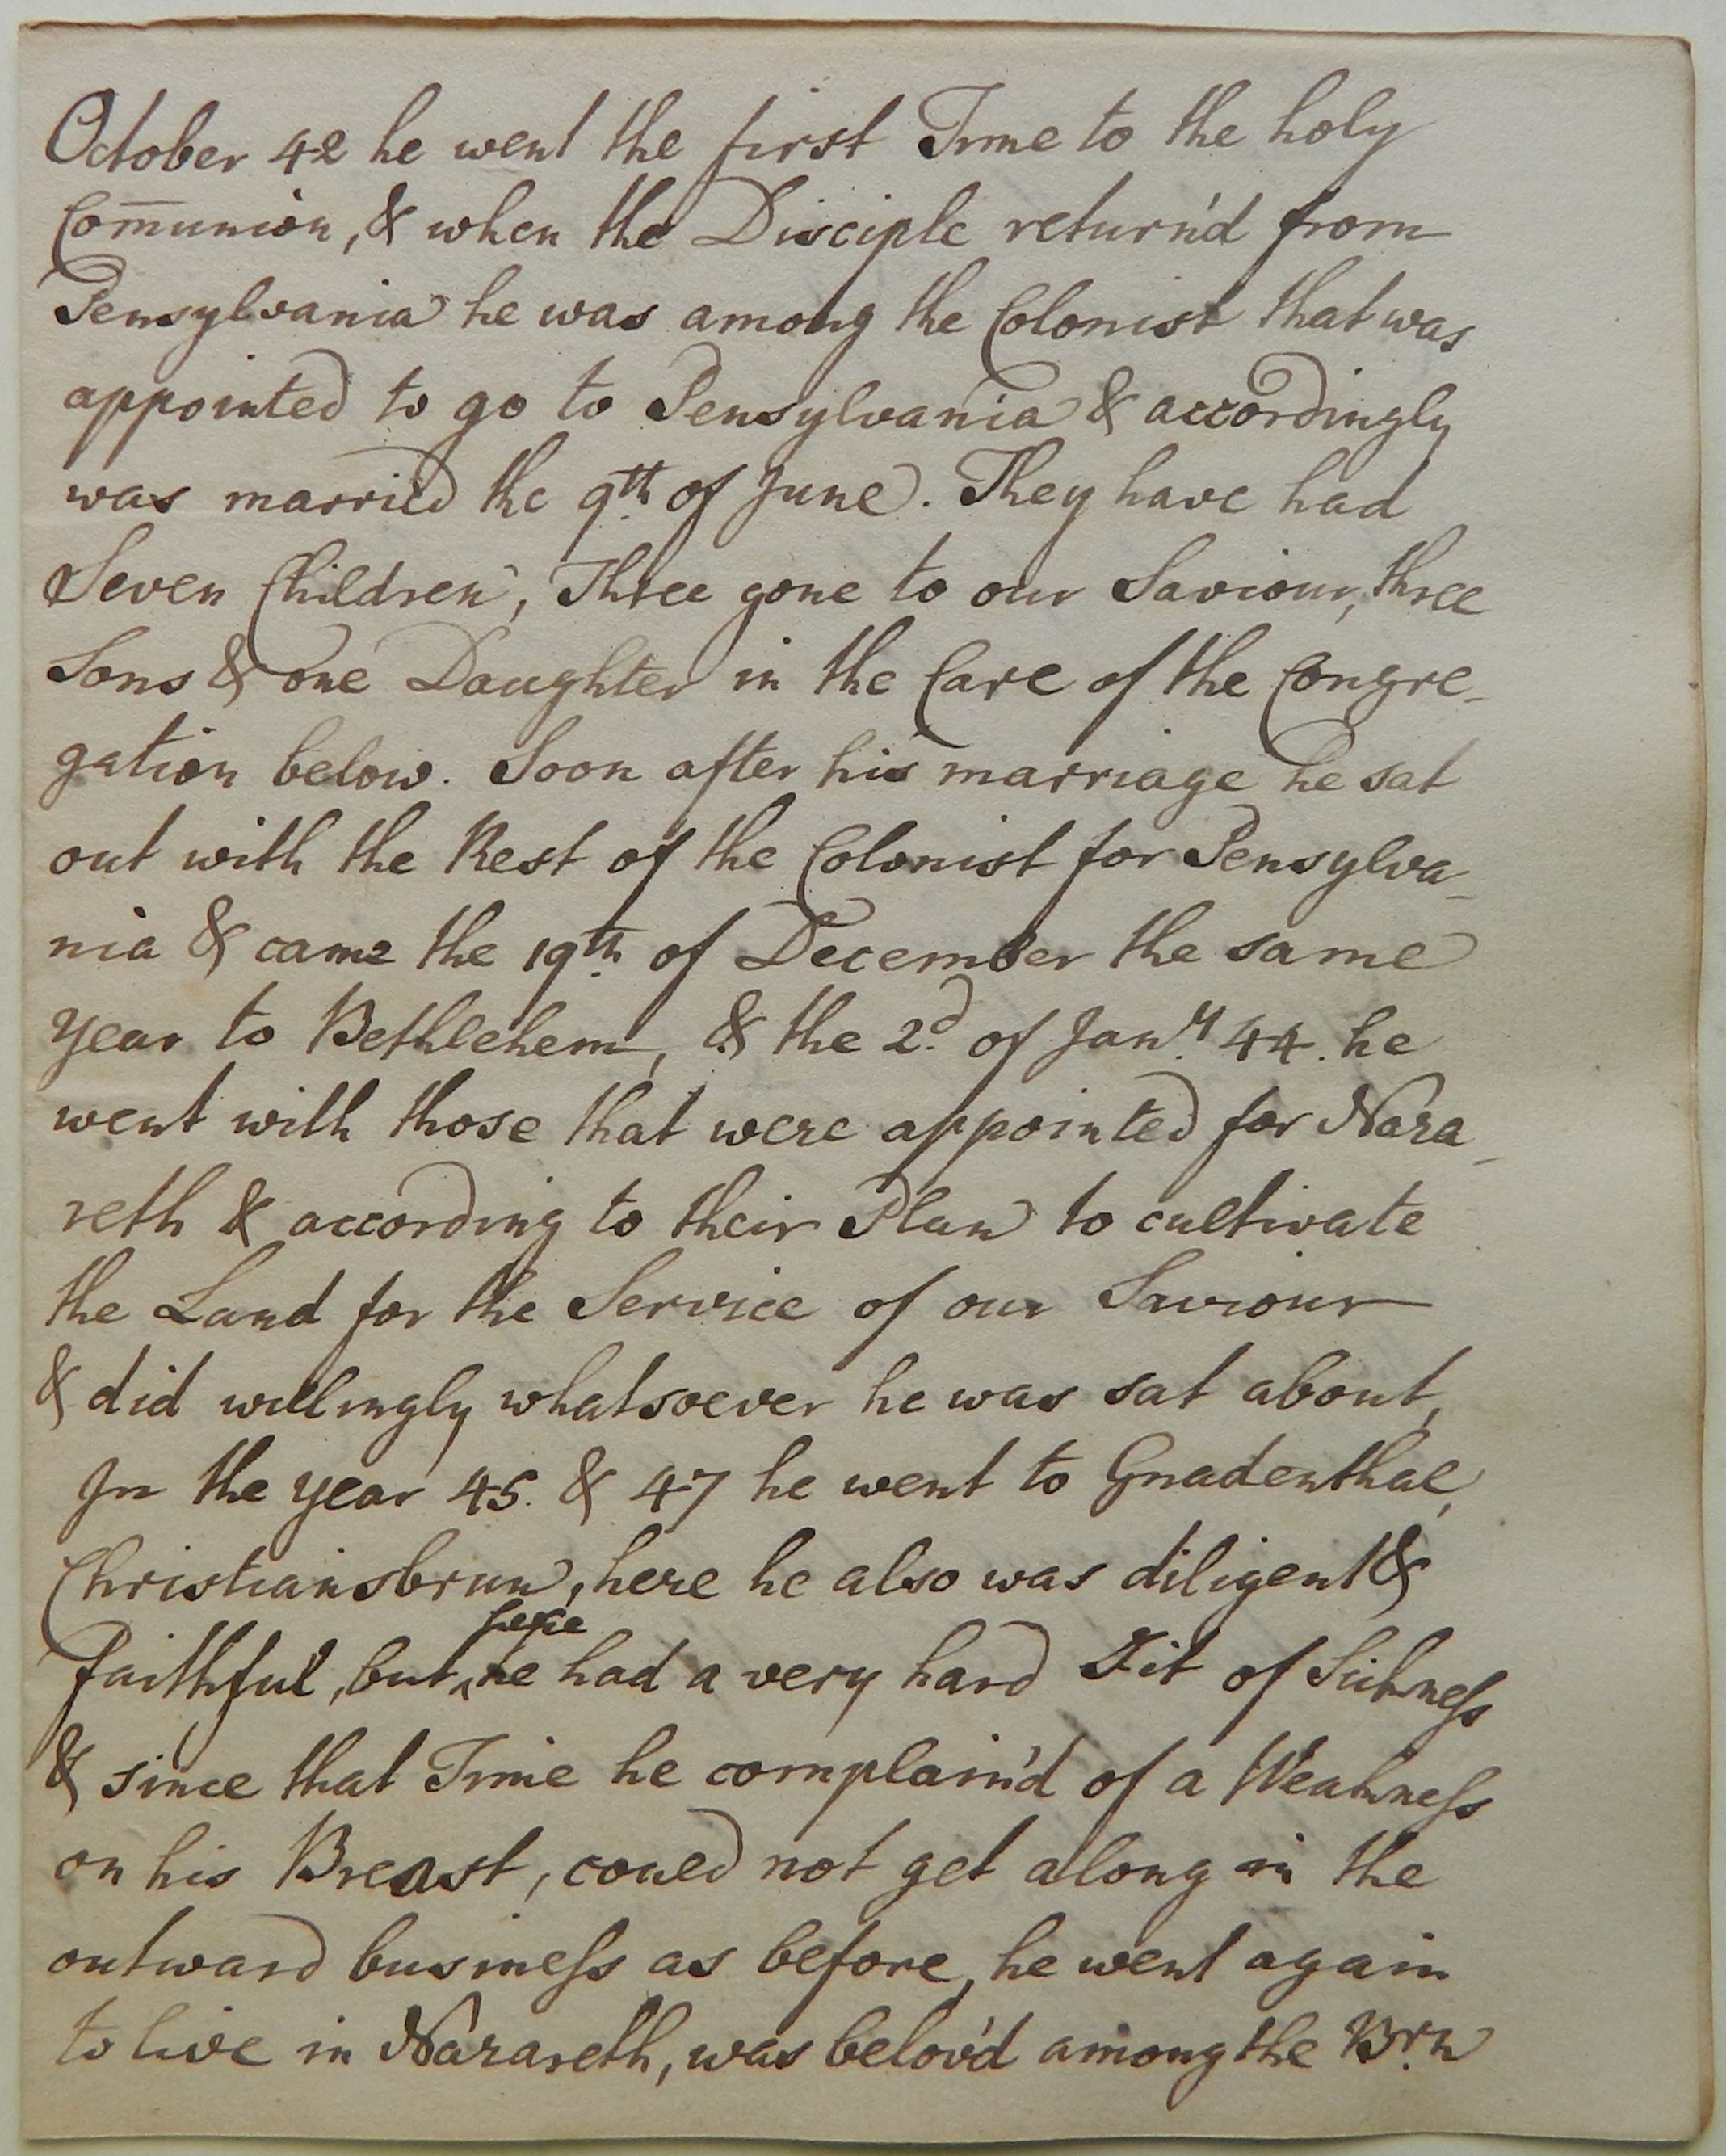 October 42 he went the first Time to the holy
Com̅union, & when the Disciple return'd from
Pensylvania he was among the Colonist that was
appointed to go to Pensylvania & accordingly
was married the 9th. of June. They have had
Seven Children, Three gone to our Saviour, three
Sons & one Daughter in the Care of the Congre-
gation below. Soon after his marriage he sat
out with the Rest of the Colonist for Pensylva-
nia & came the 19th. of December the same
year to Bethlehem, & the 2d. of Jany. 44. he
went with those that were appointed for Naza-
reth & according to their Plan to cultivate
the Land for the Service of our Saviour
& did willingly whatsoever he was sat about,
In the year 45. & 47 he went to Gnadenthal,
Christiansbrun, here he also was diligent &
faithful, but ‸here he had a very hard Fit of Sickneſs
& since that Time he complain'd of a Weakneſs
on his Breast, coued not get along in the
outward busineſs as before, he went again
to live in Nazareth, was belov'd among the Brn.